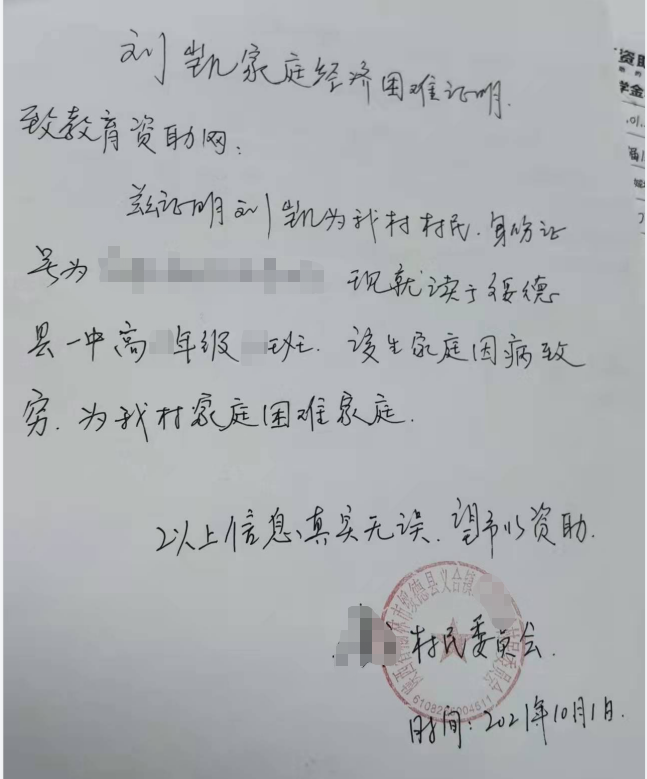 刘凯家庭经济困难证明.
致教育资助网:
兹证明刘凯为我村村民.身份证
号为 现就读于绥德
县一中高 年级 班.该生家庭因病致
穷.为我村家庭困难家庭.
以上信息真实无误.望予以资助.
村民委员会.
陕西省榆林市绥德县义合镇 村民委员会
时间:2021年10月1日.
资助
学金